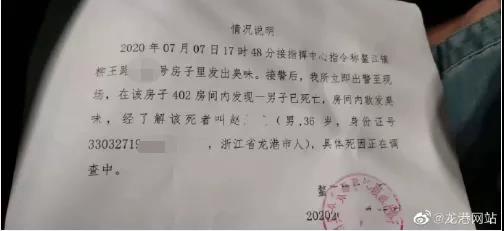 情况说明
2020 年 07 月 07 日 17 时 48 分接指挥中心指令称鳌江镇
柳王路 号房子里发出臭味。接警后，我所立即出警至现
场，在该房子 402 房间内发现一男子已死亡，房间内散发臭
味，经了解该死者叫赵 （男，36 岁，身份证号
33032719 ，浙江省龙港市人），具体死因正在调
查中。
鳌
2020
@龙港网站